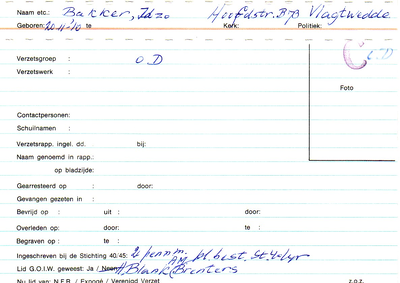 Naam etc.: Bakker, Idzo Hoofdstr. B78 Vlagtwedde
Geboren: 20-11-'10 te Kerk: Politiek:
Verzetsgroep : O.D
Verzetswerk :
Foto
Contactpersonen:
Schuilnaam :
Verzetsrapp. ingel. dd. bij:
Naam genoemd in rapp.:
op bladzijde:
Gearresteerd op : door:
Gevangen gezeten in :
Bevrijd op : uit : door:
Overleden op: door: te :
Begraven op : te :
Ingeschreven bij de Stichting 40/45: best. St.
Lid G.O.I.W. geweest: Ja / Neen H. Blank
Nu lid van: N.F.R. / Expogé / Verenigd Verzet z.o.z.